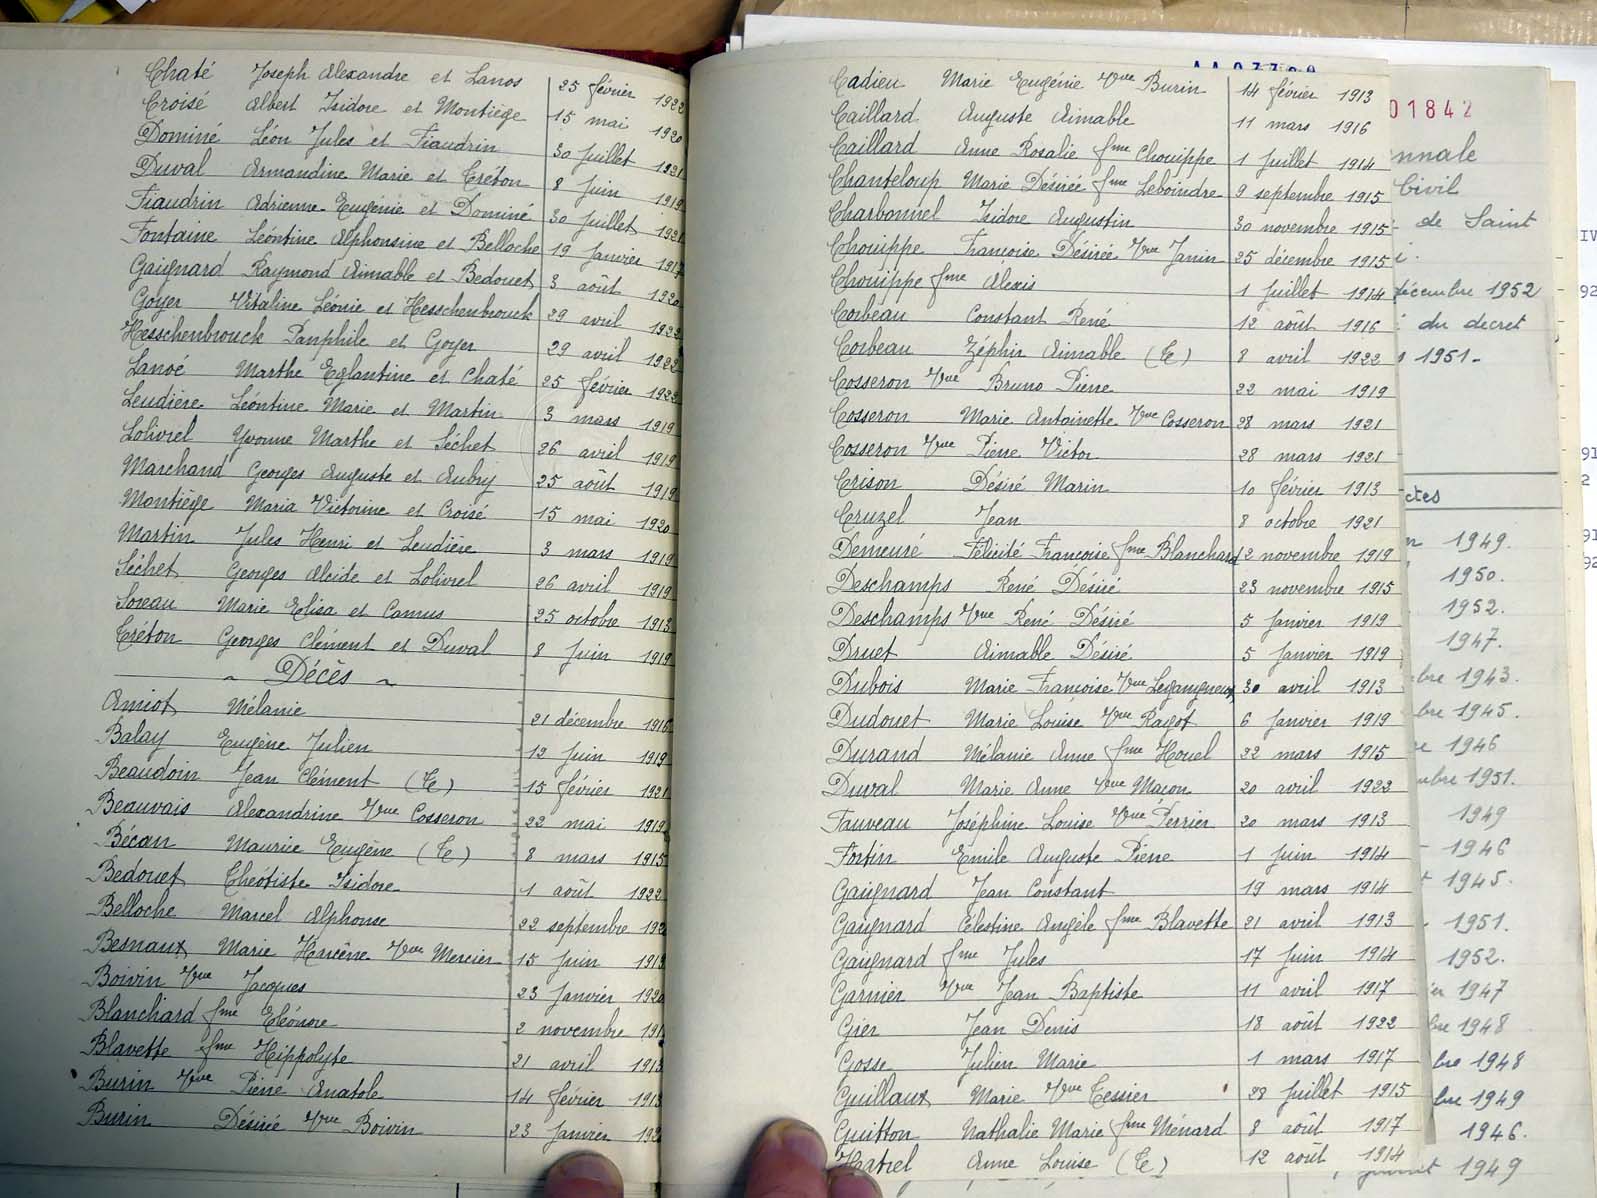 Chaté Joseph Alexandre et Lanos 25 février 1922
Croisé Albert Isidore et Montiège 15 mai 1920
Dominé Léon Jules et Fiaudrin 30 Juillet 1921
Duval Armandine Marie et Créton 8 Juin 1919
Fiaudrin Adrienne Eugénie et Dominé 30 Juillet 1921
Fontaine Léontine Alphonsine et Belloche 19 Janvier 1917
Gaignard Raymond Aimable et Bedouet 3 août 1920
Goyer Vitaline Léonie et Hesschenbrouck 29 avril 1922
Hesschenbrouck Panphile et Goyer 29 avril 1922
Lanoé Marthe Eglantine et Chaté 25 février 1922
Leudière Léontine Marie et Martin 3 mars 1919
Lolivrel Yvonne Marthe et Séchet 26 avril 1919
Marchand Georges Auguste et Aubry 25 août 1919
Montiège Maria Victorine et Croisé 15 mai 1920
Martin Jules Henri et Leudière 3 mars 1919
Séchet Georges Alcide et Lolivrel 26 avril 1919
Soreau Marie Elisa et Camus 25 octobre 1913
Créton Georges Clément et Duval 8 Juin 1919
~ Décès ~
Amiot Mélanie 21 décembre 1916
Balay Eugène Julien 12 Juin 1919
Beaudoin Jean Clément (Te) 15 février 1921
Beauvais Alexandrine Vve Cosseron 22 mai 1919
Bécan Maurice Eugène (Te) 8 mars 1915
Bedouet Théotiste Isidore 1 août 1922
Belloche Marcel Alphonse 22 septembre 192
Besnaux Marie Vve Mercier 15 Juin 1913
Boivin Vve Jacques 23 Janvier 1920
Blanchard fme Eléonore 2 novembre 191
Blavette fme Hippolyte 21 avril 1913
Burin Vve Pierre Anatole 14 février 1913
Burin Désirée Vve Boivin 23 Janvier 192
Cadieu Marie Eugénie Vve Burin 14 février 1913
Caillard Auguste Aimable 11 mars 1916
Caillard Anne Rosalie fme Chouippe 1 Juillet 1914
Chanteloup Marie Désirée fme Leboindre 9 septembre 1915
Charbonnel Isidore Augustin 30 novembre 1915
Chouippe Françoise Désirée Vve Janin 25 décembre 1915
Chouippe fme Alexis 1 Juillet 1914
Corbeau Constant René 12 août 1916
Corbeau Zéphir Aimable (Te) 8 avril 1922
Cosseron Vve Bruno Pierre 22 mai 1919
Cosseron Marie Antoinette Vve Cosseron 28 mars 1921
Cosseron Vve Pierre Victor 28 mars 1921
Crison Désiré Marin 10 février 1913
Cruzel Jean 8 octobre 1921
Demeuré Félicité Françoise fme Blanchard 2 novembre 1919
Deschamps René Désiré 23 novembre 1915
Deschamps Vve René Désiré 5 Janvier 1919
Druet Aimable Désiré 5 Janvier 1919
Dubois Marie Françoise Vve Legangneux 30 avril 1913
Dudouet Marie Louise Vve Ragot 6 Janvier 1919
Durand Mélanie Anne fme Houel 22 mars 1915
Duval Marie Anne Vve Maçon 20 avril 1922
Fauveau Joséphine Louise Vve Perrier 20 mars 1913
Fortin Emile Auguste Pierre 1 Juin 1914
Gaugnard Jean Constant 19 mars 1914
Gaugnard Célestine Angèle fme Blavette 21 avril 1913
Gaugnard fme Jules 17 Juin 1914
Garnier Vve Jean Baptiste 11 avril 1917
Gier Jean Denis 18 août 1922
Gosse Julien Marie 1 mars 1917
Guillaux Marie Vve Tessier 28 Juillet 1915
Guitton Nathalie Marie fme Ménard 8 août 1917
Hatrel Anne Louise (Te) 12 août 1914
01842
nnale
Civil
de Saint
décembre 1952
du decret
1951-
ctes
1949.
1950.
1952.
1947.
bre 1943.
bre 1945.
1946
mbre 1951.
1949
1946
1945.
1951.
1952.
1947
bre 1948
bre 1948
bre 1949
1946.
1949